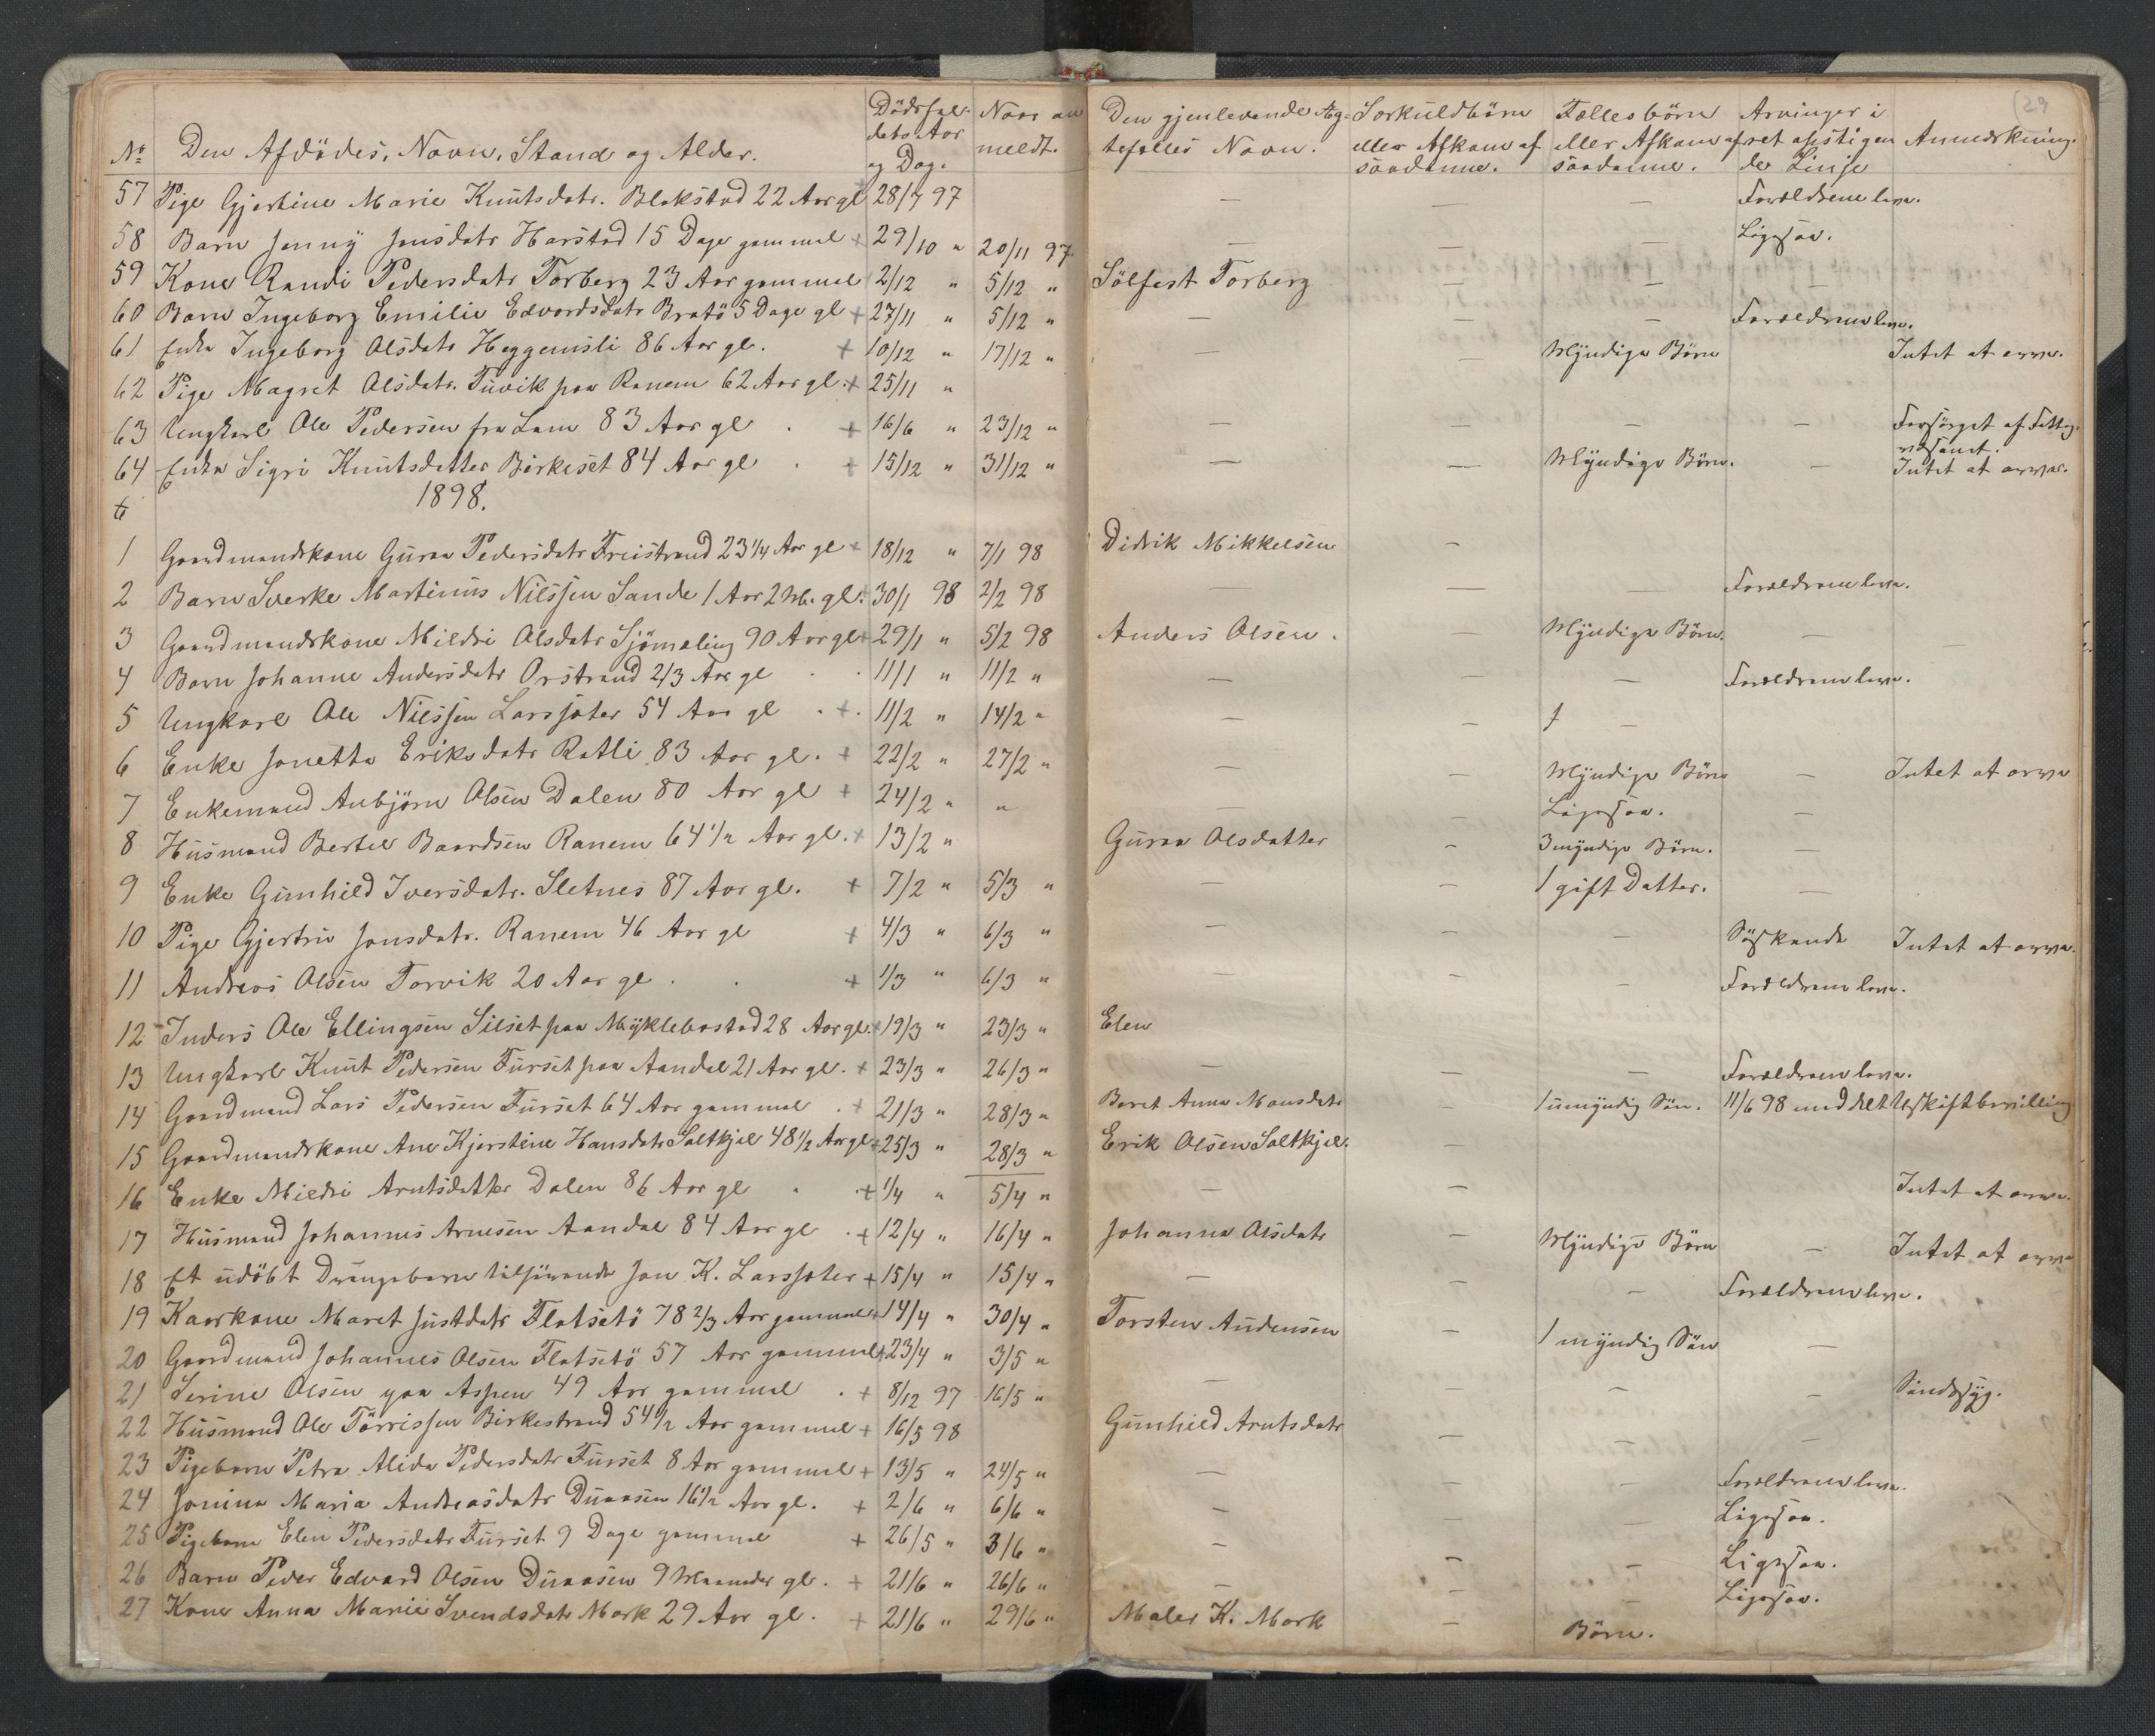 29
Nº Den Afdödes, Navn, Stand og Alder. Dödsfaldets Aar og Dag. Naar anmeldt. Den gjenlevende Ægtefælles Navn. Særkuldbörn eller Afkom af saadanne. Fællesbörn eller Afkom af saadanne. Arvinger i ret opstigende Linje Anmærkning.
57 Pige Gjertine Marie Knutsdatr. Blakstad 22 Aar gl 28/7 97 — — — Forældrene leve.
58 Barn Jenny Jonsdatr Harstad 15 Dage gammel + 29/10 " 20/11 97 — — — Ligesaa.
59 Kone Randi Pedersdatr Torberg 23 Aar gammel 2/12 " 5/12 " Sölfest Torberg — — —
60 Barn Ingeborg Emilie Edvardsdatr Bratö 5 Dage gl + 27/11 " 5/12 " — — — Forældrene leve.
61 Enke Ingeborg Olsdatr Heggemsli 86 Aar gl. + 10/12 " 17/12 " — — Myndige Börn Intet at arve.
62 Pige Magret Olsdatr. Tuvik paa Ranem 62 Aar gl. + 25/11 "
63 Ungkarl Ole Pedersen fra Lam 83 Aar gl . + 16/6 " 23/12 " — — — — Forsörget af Fattigvæsenet.
64 Enke Sigri Knutsdatter Birkeset 84 Aar gl . + 15/12 " 31/12 " — — Myndige Börn. — Intet at arve.
1898.
1 Gaardmandskone Guraa Pedersdatr Freistrand 23 1/4 Aar gl + 18/12 " 7/1 98 Didrik Mikkelsen —
2 Barn Sverke Martinus Nilssen Sande 1 Aar 2 M. gl. + 30/1 98 2/2 98 — — — Forældrene leve.
3 Gaardmandskone Mildri Olsdatr Sjömæling 90 Aar gl + 29/1 " 5/2 98 Anders Olsen. — Myndige Börn. —
4 Barn Johanne Andersdatr Orstrand 2/3 Aar gl . . 11/1 " 11/2 " — — — Forældrene leve.
5 Ungkarl Ole Nilssen Larssæter 54 Aar gl . + . 11/2 " 14/2 " — — —
6 Enke Jonetta Eriksdatr Ratli 83 Aar gl. + 22/2 " 27/2 " — — Myndige Börn — Intet at arve
7 Enkemand Anbjörn Olsen Dalen 80 Aar gl + 24/2 " " — — Ligesaa. —
8 Husmand Bertel Baardsen Ranem 64 1/2 Aar gl. + 13/2 " Guraa Olsdatter — 3 myndige Börn. —
9 Enke Gunhild Iversdatr. Sletnes 87 Aar gl. + 7/2 " 5/3 " — — 1 gift Datter. —
10 Pige Gjertru Jonsdatr. Ranem 46 Aar gl + 4/3 " 6/3 " — — — Söskende Intet at arve.
11 Andreas Olsen Torvik 20 Aar gl . . + 1/3 " 6/3 " — — — Forældrene leve.
12 Inders Ole Ellingsen Silset paa Myklebostad 28 Aar gl. + 19/3 " 23/3 " Elen
13 Ungkarl Knut Pedersen Furset paa Aandal 21 Aar gl. + 23/3 " 26/3 " — — — Forældrene leve.
14 Gaardmand Lars Pedersen Furset 64 Aar gammel . + 21/3 " 28/3 " Beret Anna Monsdatr — 1 umyndig Sön. 11/6 98 meddelt Uskiftbevilling
15 Gaardmandskone Ane Kjerstine Hansdatr Saltkjel 48 1/2 Aar gl + 25/3 " 28/3 " Erik Olsen Saltkjel. —
16 Enke Mildri Arntsdatter Dalen 86 Aar gl . . + 1/4 " 5/4 " — — Intet at arve.
17 Husmand Johannes Arnesen Aandal 84 Aar gl . + 12/4 " 16/4 " Johanna Olsdatr — Myndige Börn — Intet at arve
18 Et udöbt Drengebarn tilhörende Jon K. Larssæter + 15/4 " 15/4 " — — — Forældrene leve.
19 Kaarkone Maret Justdatr Flatsetö 78 2/3 Aar gammel + 14/4 " 30/4 " Torsten Audensen — 1 myndig Sön —
20 Gaardmand Johannes Olsen Flatsetö 57 Aar gammel + 23/4 " 3/5 "
21 Serine Olsen paa Aspen 49 Aar gammel . + 8/12 97 16/5 " — — — — Sindssyg.
22 Husmand Ole Törrissen Birkestrand 54 1/2 Aar gammel + 16/5 98 Gunhild Arntsdatr — — —
23 Pigebarn Petra Alida Pedersdatr Furset 8 Aar gammel + 13/5 " 24/5 " — — — Forældrene leve.
24 Jonina Maria Andreasdatr Duaasen 16 1/2 Aar gl. + 2/6 " 6/6 " — — — Ligesaa.
25 Pigebarn Elen Pedersdatr Furset 9 Dage gammel + 26/5 " 3/6 " — — — Ligesaa.
26 Barn Peder Edvard Olsen Duaasen 9 Maaneder gl. + 21/6 " 26/6 " — — — Ligesaa.
27 Kone Anna Marie Svendsdatr Mork 29 Aar gl. + 21/6 " 29/6 " Maler K. Mork — Börn.